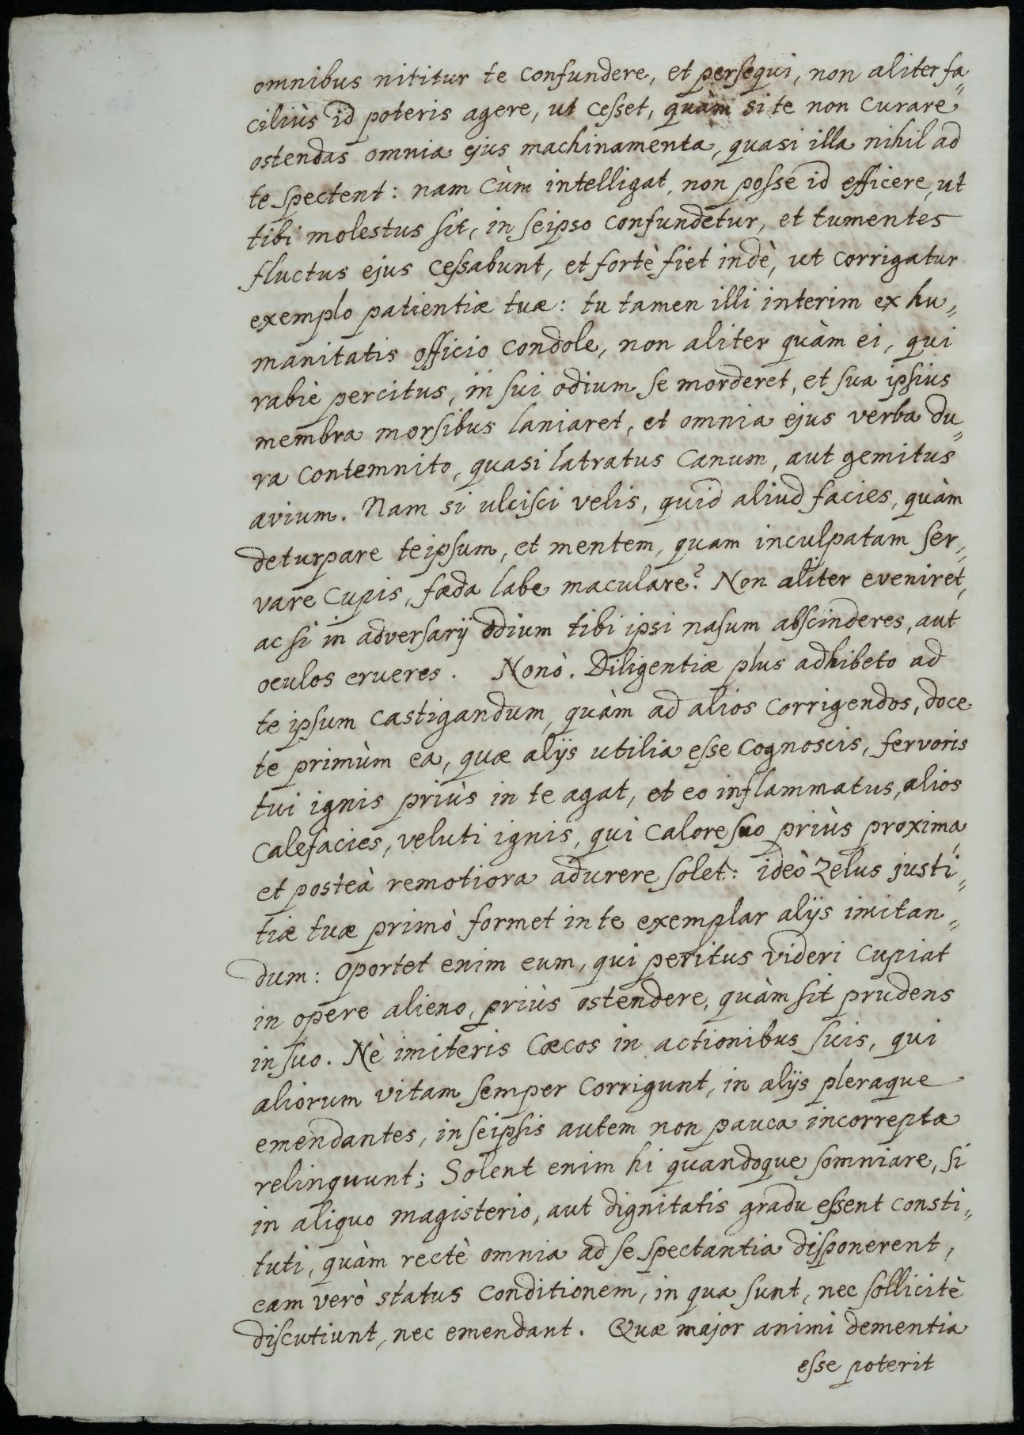 omnibus nititur te confundere, et persequi, non aliter fa„
ciliùs id poteris agere, ut cesset, quàm si te non curare
ostendas omnia ejus machinamenta, quasi illa nihil ad
te spectent: nam cùm intelligat, non posse id efficere, ut
tibi molestus sit, in seipso confundetur, et tumentes
fluctus ejus cessabunt, et fortè fiet indè, ut corrigatur
exemplo patientiæ tuæ: tu tamen illi interim ex hu„
manitatis officio condole, non aliter quàm ei, qui
rabiè percitus, in sui odium se morderet, et sua ipsius
membra morsibus laniaret, et omnia ejus verba du„
ra contemnito, quasi latratus canum, aut gemitus
avium. Nam si ulcisci velis, quid aliud facies, quàm
deturpare teipsum, et mentem, quam inculpatam ser„
vare cupis, fæda labe maculare? Non aliter eveniret,
ac si in adversarij odium tibi ipsi nasum abscinderes, aut
oculos erueres. Nonò. Diligentiæ plus adhibeto ad
te ipsum castigandum, quàm ad alios corrigendos, doce
te primùm ea, quæ alijs utilia esse cognoscis, fervoris
tui ignis priùs in te agat, et eo inflammatus, alios
calefacies, veluti ignis, qui calore suo priùs proxima,
et posteà remotiora adurere solet: ideò zelus justi„
tiæ tuæ primò formet in te exemplar alijs imitan„
dum: oportet enim eum, qui peritus videri cupiat
in opere alieno, priùs ostendere, quàm sit prudens
in suo. Nè imiteris cœcos in actionibus suis, qui
aliorum vitam semper corrigunt, in alijs pleraque
emendantes, in seipsis autem non pauca incorrepta
relinquunt; Solent enim hi quandoque somniare, si
in aliquo magisterio, aut dignitatis gradu essent consti„
tuti, quàm rectè omnia ad se spectantia disponerent,
eam verò status conditionem, in qua sunt, nec sollicitè
discutiunt, nec emendant. Quæ major animi dementia
esse poterit